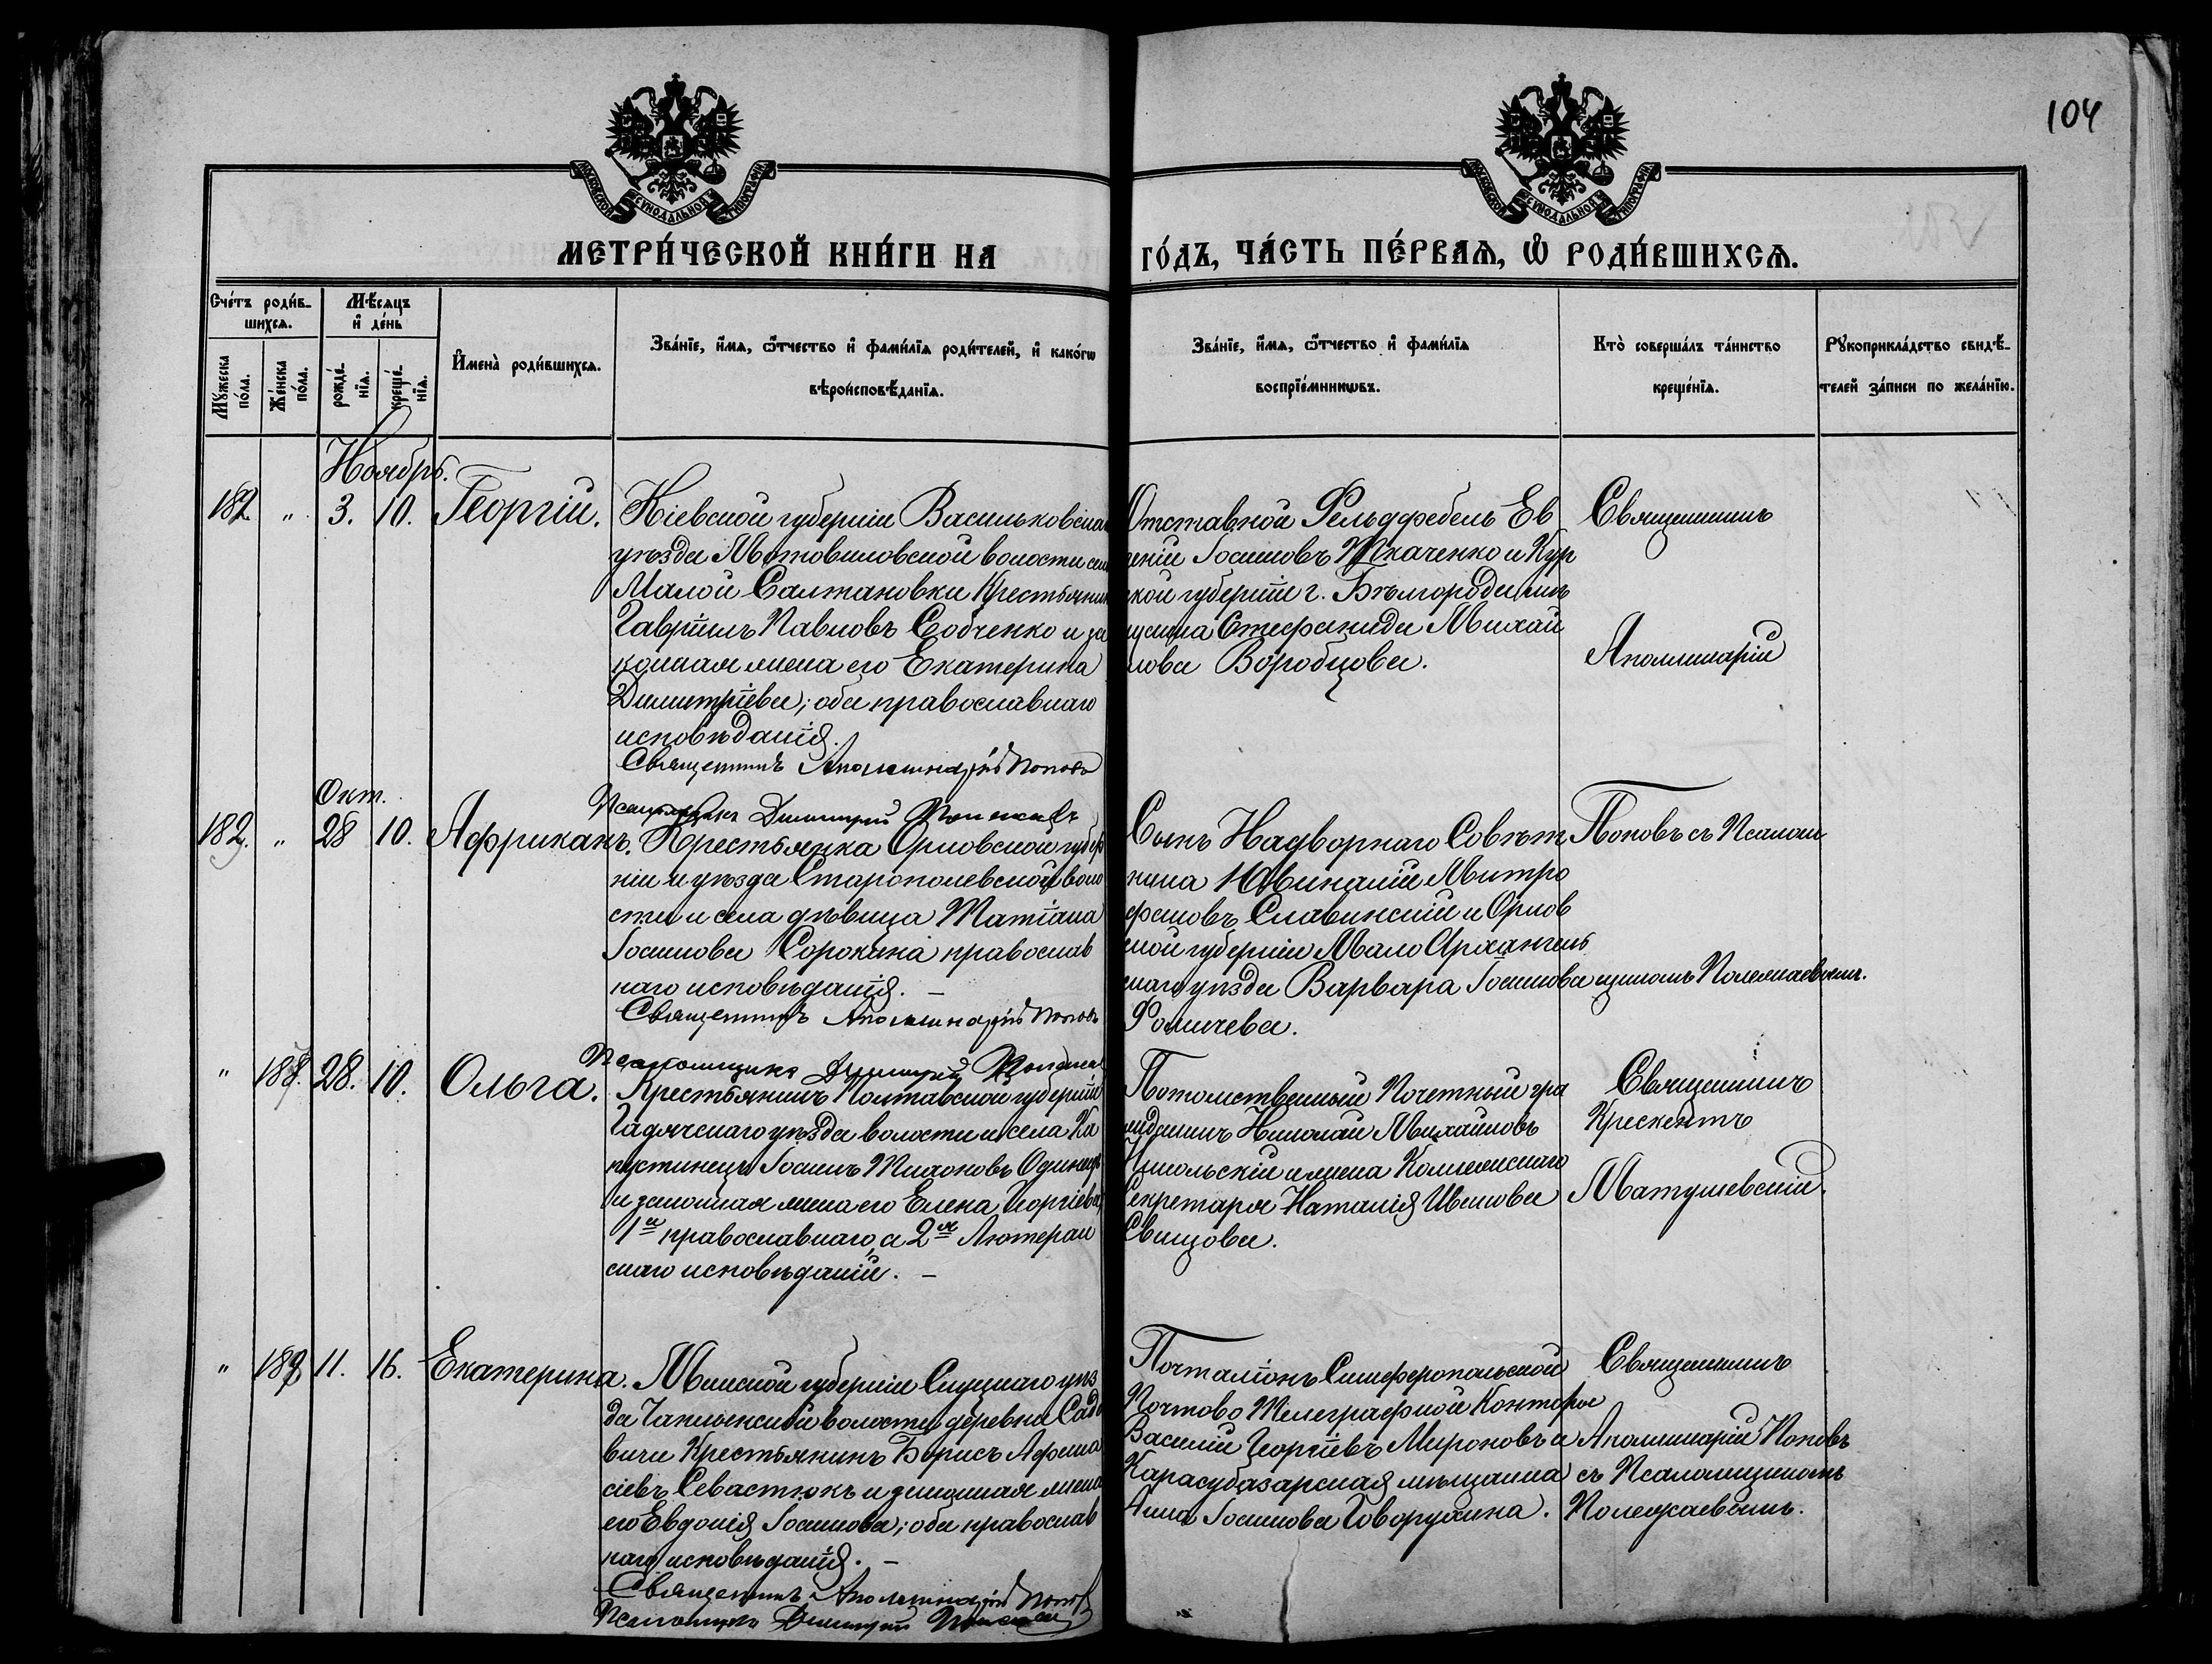 104
МОСКОВСКОЙ СѴНОДАЛЬНОЙ ТИПОГРАФІИ
МОСКОВСКОЙ СѴНОДАЛЬНОЙ ТИПОГРАФІИ
МЕТРИ́ЧЕСКОЙ КНИ́ГИ НА
ГО́ДЪ, ЧА́СТЬ ПЕ́РВАѦ, Ѽ РОДИ́ВШИХСѦ.
Сче́тъ роди́в-
шихсѧ.
Мѣ́сѧцъ
и҆ де́нь
Мꙋ́жеска
по́ла.
Же́нска
по́ла.
рожде́-
нїѧ.
креще́-
нїѧ.
И҆мена̀ роди́вшихсѧ.
Зва́нїе, и҆́мѧ, ѻ҆́тчество и҆ фами́лїѧ роди́телей, и҆ како́гѡ
вѣроисповѣ́данїѧ.
Зва́нїе, и҆́мѧ, ѻ҆́тчество и҆ фами́лїѧ
воспрїе́мникѡвъ.
Кто̀ соверша́лъ та́инство
креще́нїѧ.
Рꙋкоприкла́дство свидѣ́-
телей за́писи по жела́нїю.
Ноябрь.
182. " 3. 10. Георгій.
Кіевской губерніи Васильковскаго
уѣзда Мотовиловской волости села
Малой Салтановки Крестьянинъ
Гавріилъ Павловъ Собченко и за
конная жена его Екатерина
Димитріева; оба православнаго
исповѣданія.
Священникъ Аполлинарій Поповъ
Псаломщикъ Димитрій
Отставной Фельдфебель Ев
геній Іосифовъ Ткаченко и Кур
ской губерніи г. Бѣлгорода
Стефанида Михай
лова Воробцова.
Священникъ
Аполлинарій
Окт.
182. " 28 10. Африканъ.
Крестьянка Орловской губер
ніи и уѣзда Старопольской воло
сти и села дѣвица Татіана
Іосифова Сорокина православ
наго исповѣданія. —
Священникъ Аполлинарій Поповъ
Псаломщикъ Димитрій
Сынъ Надворнаго Совѣт
ника Ювиналій Митро
фановъ Славинскій и Орлов
ской губерніи Мало Архангель
скаго уѣзда Варвара Іосифова
Фомичева.
Поповъ съ Псалом
щикомъ Полежаевымъ.
" 28. 10. Ольга.
Крестьянинъ Полтавской губерніи
Гадячскаго уѣзда волости и села Ка
пустинецъ Іосифъ Тихоновъ
и законная жена его Елена Георгіева,
1й православнаго, а 2я Лютеран
скаго исповѣданій. —
Потомственный Почетный гра
жданинъ Николай Михайловъ
Никольскій и жена Коллежскаго
Секретаря Наталія Иванова
Свищова.
Священникъ
Крескентъ
Матушевскій.
" 11. 16. Екатерина.
Минской губерніи Слуцкаго уѣз
да Чаплинской волости деревни Садо
вичи Крестьянинъ Борисъ Афана
сіевъ Севастюкъ и законная жена
его Евдокія Іосифова; оба православ
наго исповѣданія. —
Священникъ Аполлинарій Поповъ
Псаломщикъ Димитрій
Почталіонъ Симферопольской
Почтово Телеграфной Конторы
Василій Георгіевъ Мироновъ и
Карасубазарская мѣщанка
Анна Іосифова Говорухина.
Священникъ
Аполлинарій Поповъ
съ Псаломщикомъ
Полежаевымъ.